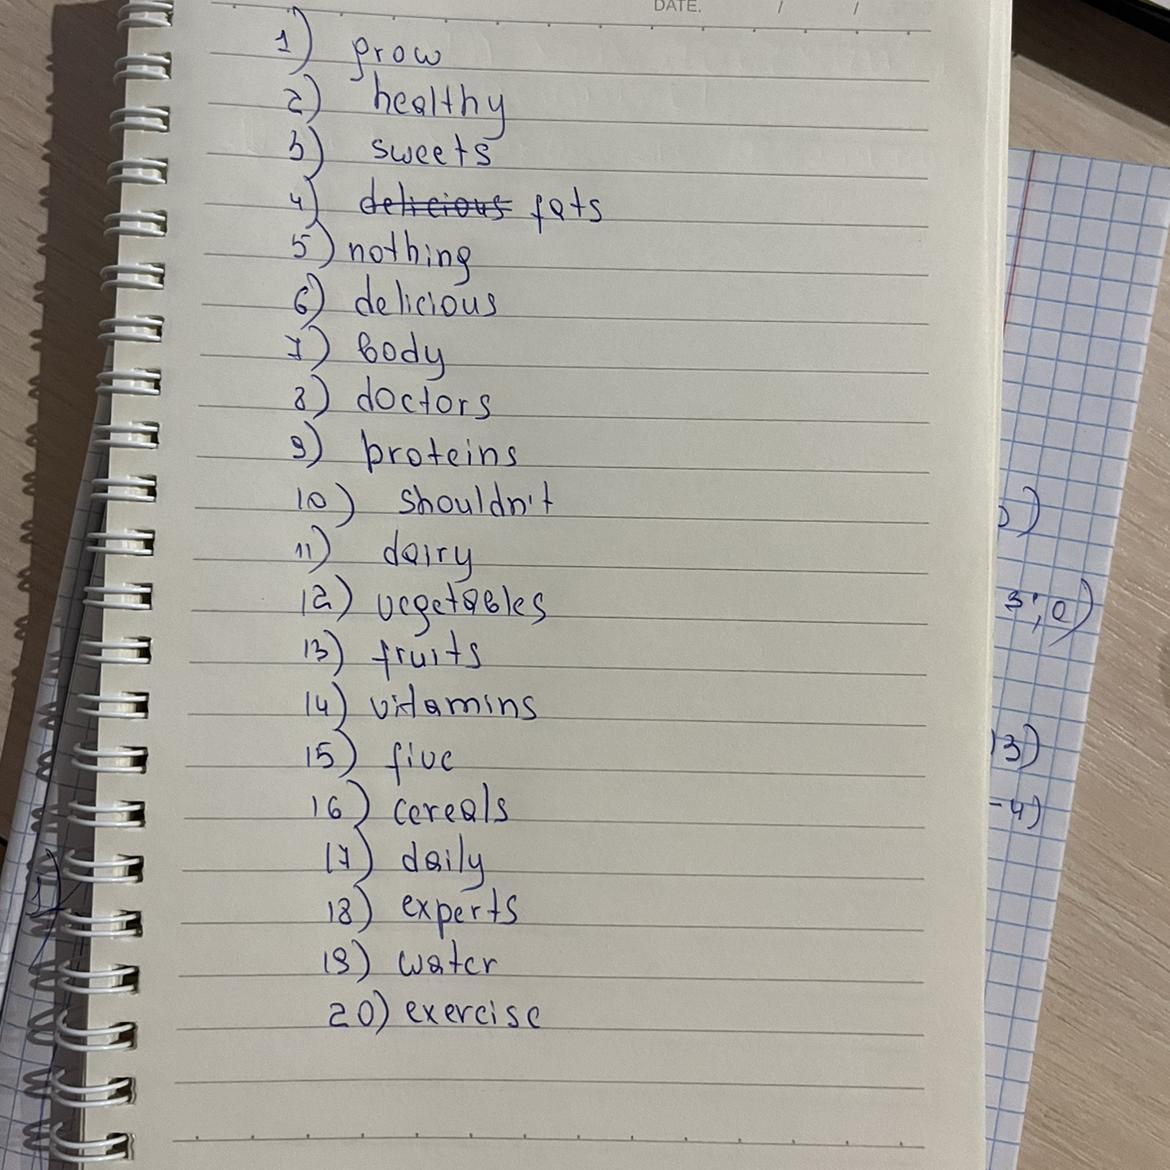 DATE. / /
1) grow
2) healthy
3) sweets
4) ~~delicious~~ fats
5) nothing
6) delicious
7) body
8) doctors
9) proteins
10) shouldn't
11) dairy
12) vegetables
13) fruits
14) vitamins
15) five
16) cereals
17) daily
18) experts
19) water
20) exercise
3; 0)
3)
-4)
1)